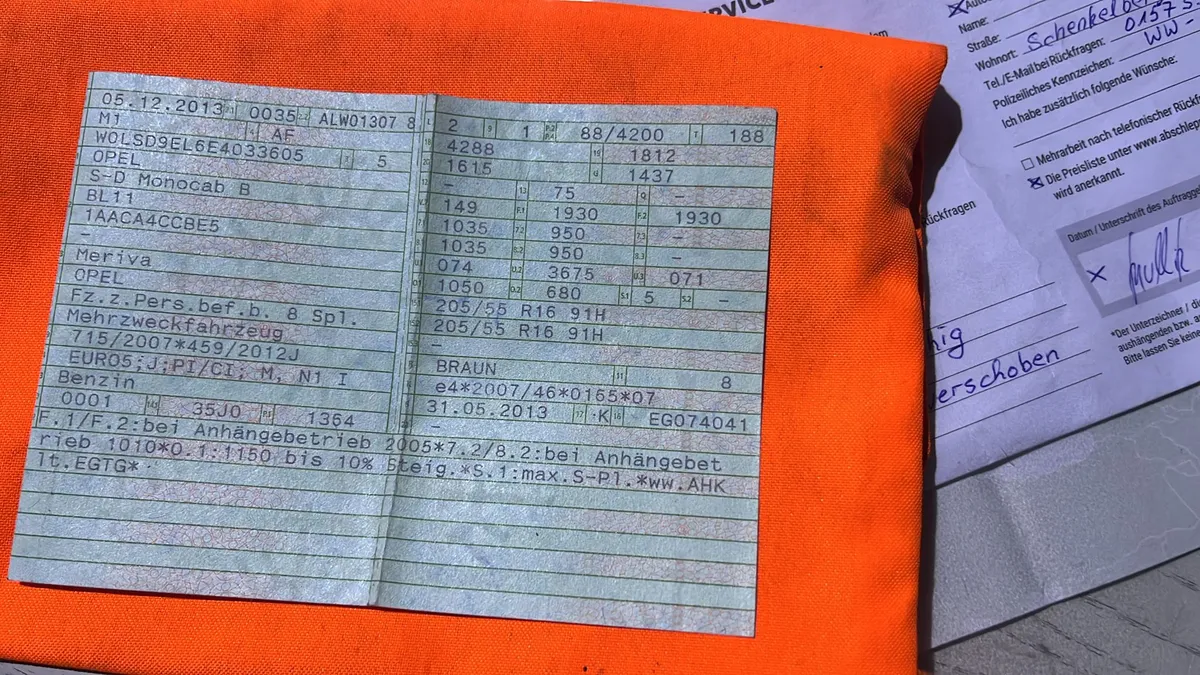 05.12.2013 0035 ALW01307 8
M1 AF
W0LSD9EL6E4033605 5
OPEL
S-D Monocab B
BL11
1AACA4CCBE5
–
Meriva
OPEL
Fz.z.Pers.bef.b. 8 Spl.
Mehrzweckfahrzeug
715/2007*459/2012J
EURO5;J;PI/CI; M, N1 I
Benzin
0001 35J0 1364
2 1 88/4200 188
4288 1812
1615 1437
– 75 –
149 1930 1930
1035 950 –
1035 950 –
074 3675 071
1050 680 5 –
205/55 R16 91H
205/55 R16 91H
–
BRAUN 8
e4*2007/46*0165*07
31.05.2013 K EG074041
–
F.1/F.2:bei Anhängebetrieb 2005*7.2/8.2:bei Anhängebet
rieb 1010*0.1:1150 bis 10% Steig.*S.1:max.S-Pl.*ww.AHK
lt.EGTG*
Name:
Straße:
Wohnort:
Tel./E-Mail bei Rückfragen:
Polizeiliches Kennzeichen: WW-
Ich habe zusätzlich folgende Wünsche:
Mehrarbeit nach telefonischer
Die Preisliste unter
wird anerkannt.
Rückfragen
Datum / Unterschrift des
erschoben
*Der Unterzeichner / 
aushängenden bzw.
Bitte lassen Sie